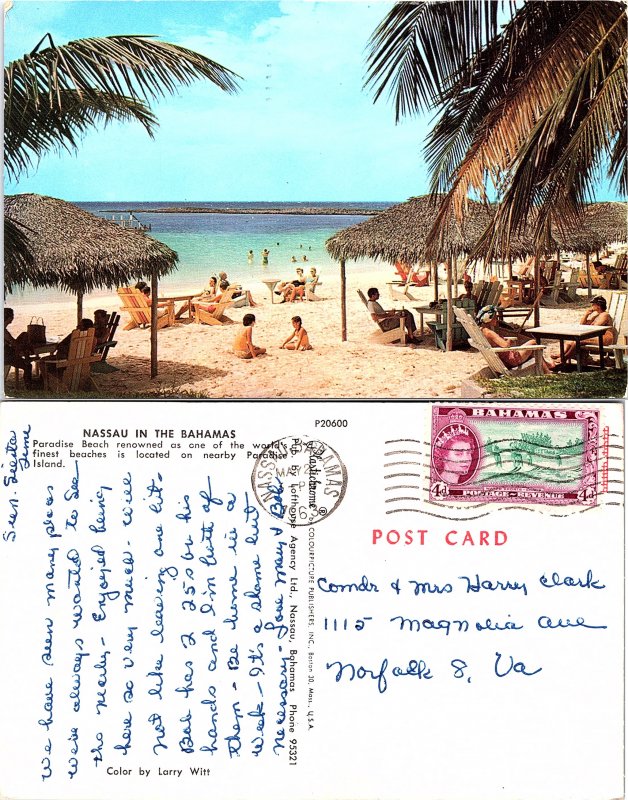 NASSAU IN THE BAHAMAS
Paradise Beach renowned as one of the world's
finest beaches is located on nearby Paradise
Island.
P20600
Sun.
Time
We have seen many places
we've always wanted to see
tho nearly - Enjoyed being
here so very much - will
not like leaving one bit -
Bob has 2 25s on his
hands and I'm both of
them - Be home in a
week - It's a shame but
necessary - Love Mary & Bob
Color by Larry Witt
Plastichrome ® by COLOURPICTURE PUBLISHERS, INC., Boston 30, Mass., U.S.A.
Pub. by Lofthouse Agency Ltd., Nassau, Bahamas Phone 95321
NASSAU BAHAMAS
BAHAMAS
4d 4d
POSTAGE-REVENUE
POST CARD
Comdr & Mrs Harry Clark
1115 Magnolia Ave
Norfolk 8, Va